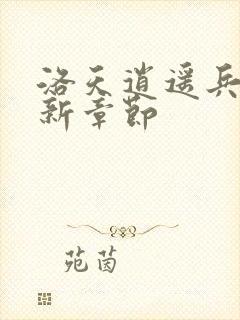 洛天逍遥兵
新章节
苑茵